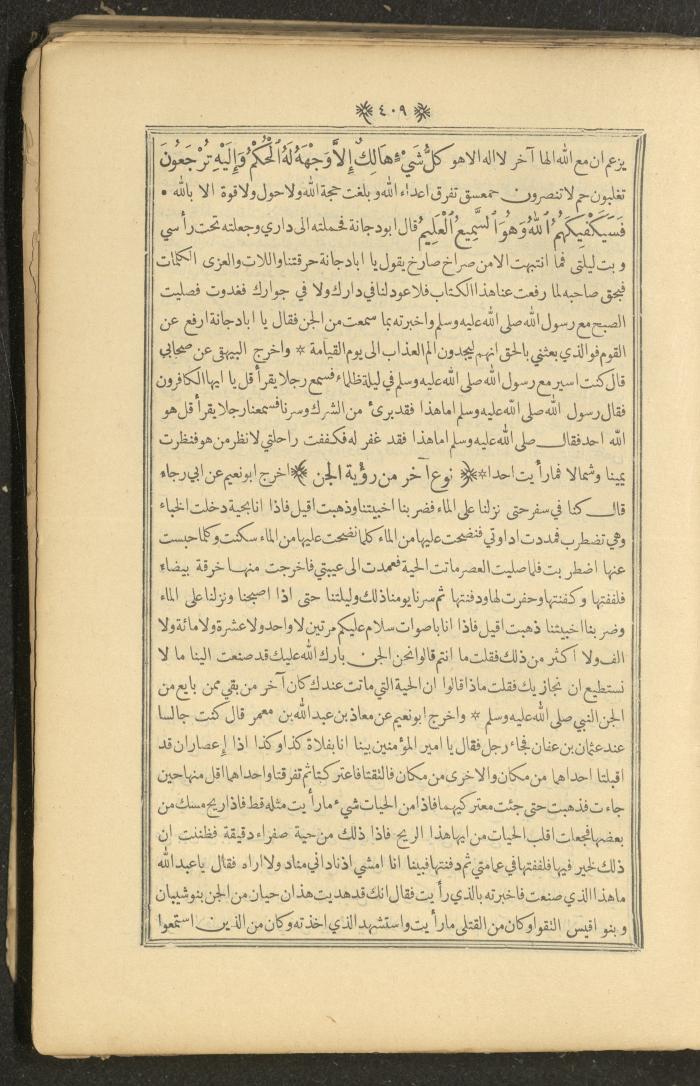 ٤٠٩
يزعم ان مع الله الها آخر لا اله الا هو كُلُّ شَيْءٍ هَالِكٌ إِلاَّ وَجْهَهُ لَهُ ٱلْحُكْمُ وَإِلَيْهِ تُرْجَعُونَ
تغلبون حم لا تنصرون حمعسق تفرق اعداء الله وبلغت حجة الله ولا حول ولا قوة الا بالله •
فَسَيَكْفِيكَهُمُ ٱللهُ وَهُوَ ٱلسَّمِيعُ ٱلْعَلِيمُ قال ابو دجانة فحملته الى داري وجعلته تحت رأسي
وبت ليلتي فما انتبهت الا من صراخ صارخ يقول يا ابا دجانة حرقتنا واللات والعزى الكلمات
فبحق صاحبه لما رفعت عنا هذا الكتاب فلا عود لنا في دارك ولا في جوارك فغدوت فصليت
الصبح مع رسول الله صلى الله عليه وسلم واخبرته بما سمعت من الجن فقال يا ابا دجانة ارفع عن
القوم فوالذي بعثني بالحق انهم ليجدون الم العذاب الى يوم القيامة * واخرج البيهقي عن صحابي
قال كنت اسير مع رسول الله صلى الله عليه وسلم في ليلة ظلماء فسمع رجلا يقرأ قل يا ايها الكافرون
فقال رسول الله صلى الله عليه وسلم اما هذا فقد برئ من الشرك وسرنا فسمعنا رجلا يقرأ قل هو
الله احد فقال صلى الله عليه وسلم اما هذا فقد غفر له فكففت راحلتي لانظر من هو فنظرت
يمينا وشمالا فما رأيت احدا * نوع آخر من رؤية الجن * اخرج ابو نعيم عن ابي رجاء
قال كنا في سفر حتى نزلنا على الماء فضربنا اخبيتنا وذهبت اقيل فاذا انا بحية دخلت الخباء
وهي تضطرب فمددت اداوتي فنضحت عليها من الماء كلما نضحت عليها من الماء سكنت وكلما حبست
عنها اضطربت فلما صليت العصر ماتت الحية فعمدت الى عيبتي فاخرجت منها خرقة بيضاء
فلففتها وكفنتها وحفرت لها ودفنتها ثم سرنا يومنا ذلك وليلتنا حتى اذا اصبحنا ونزلنا على الماء
وضربنا اخبيتنا ذهبت اقيل فاذا انا باصوات سلام عليكم مرتين لا واحد ولا عشرة ولا مائة ولا
الف ولا اكثر من ذلك فقلت ما انتم قالوا نحن الجن بارك الله عليك قد صنعت الينا ما لا
نستطيع ان نجازيك فقلت ماذا قالوا ان الحية التي ماتت عندك كان آخر من بقي ممن بايع من
الجن النبي صلى الله عليه وسلم * واخرج ابو نعيم عن معاذ بن عبد الله بن معمر قال كنت جالسا
عند عثمان بن عفان فجاء رجل فقال يا امير المؤمنين بينا انا بفلاة كذا وكذا اذا إعصاران قد
اقبلتا احداهما من مكان والاخرى من مكان فالتقتا فاعتركتا ثم تفرقتا واحداهما اقل منها حين
جاءت فذهبت حتى جئت معتركهما فاذا من الحيات شيء ما رأيت مثله قط فاذا ريح مسك من
بعضها فجعلت اقلب الحيات من ايها هذا الريح فاذا ذلك من حية صفراء دقيقة فظننت ان
ذلك لخير فيها فلففتها في عمامتي ثم دفنتها فبينا انا امشي اذ ناداني مناد ولا اراه فقال يا عبد الله
ما هذا الذي صنعت فاخبرته بالذي رأيت فقال انك قد هديت هذان حيان من الجن بنو شيبان
وبنو اقيس التقوا وكان من القتلى ما رأيت واستشهد الذي اخذته وكان من الذين استمعوا